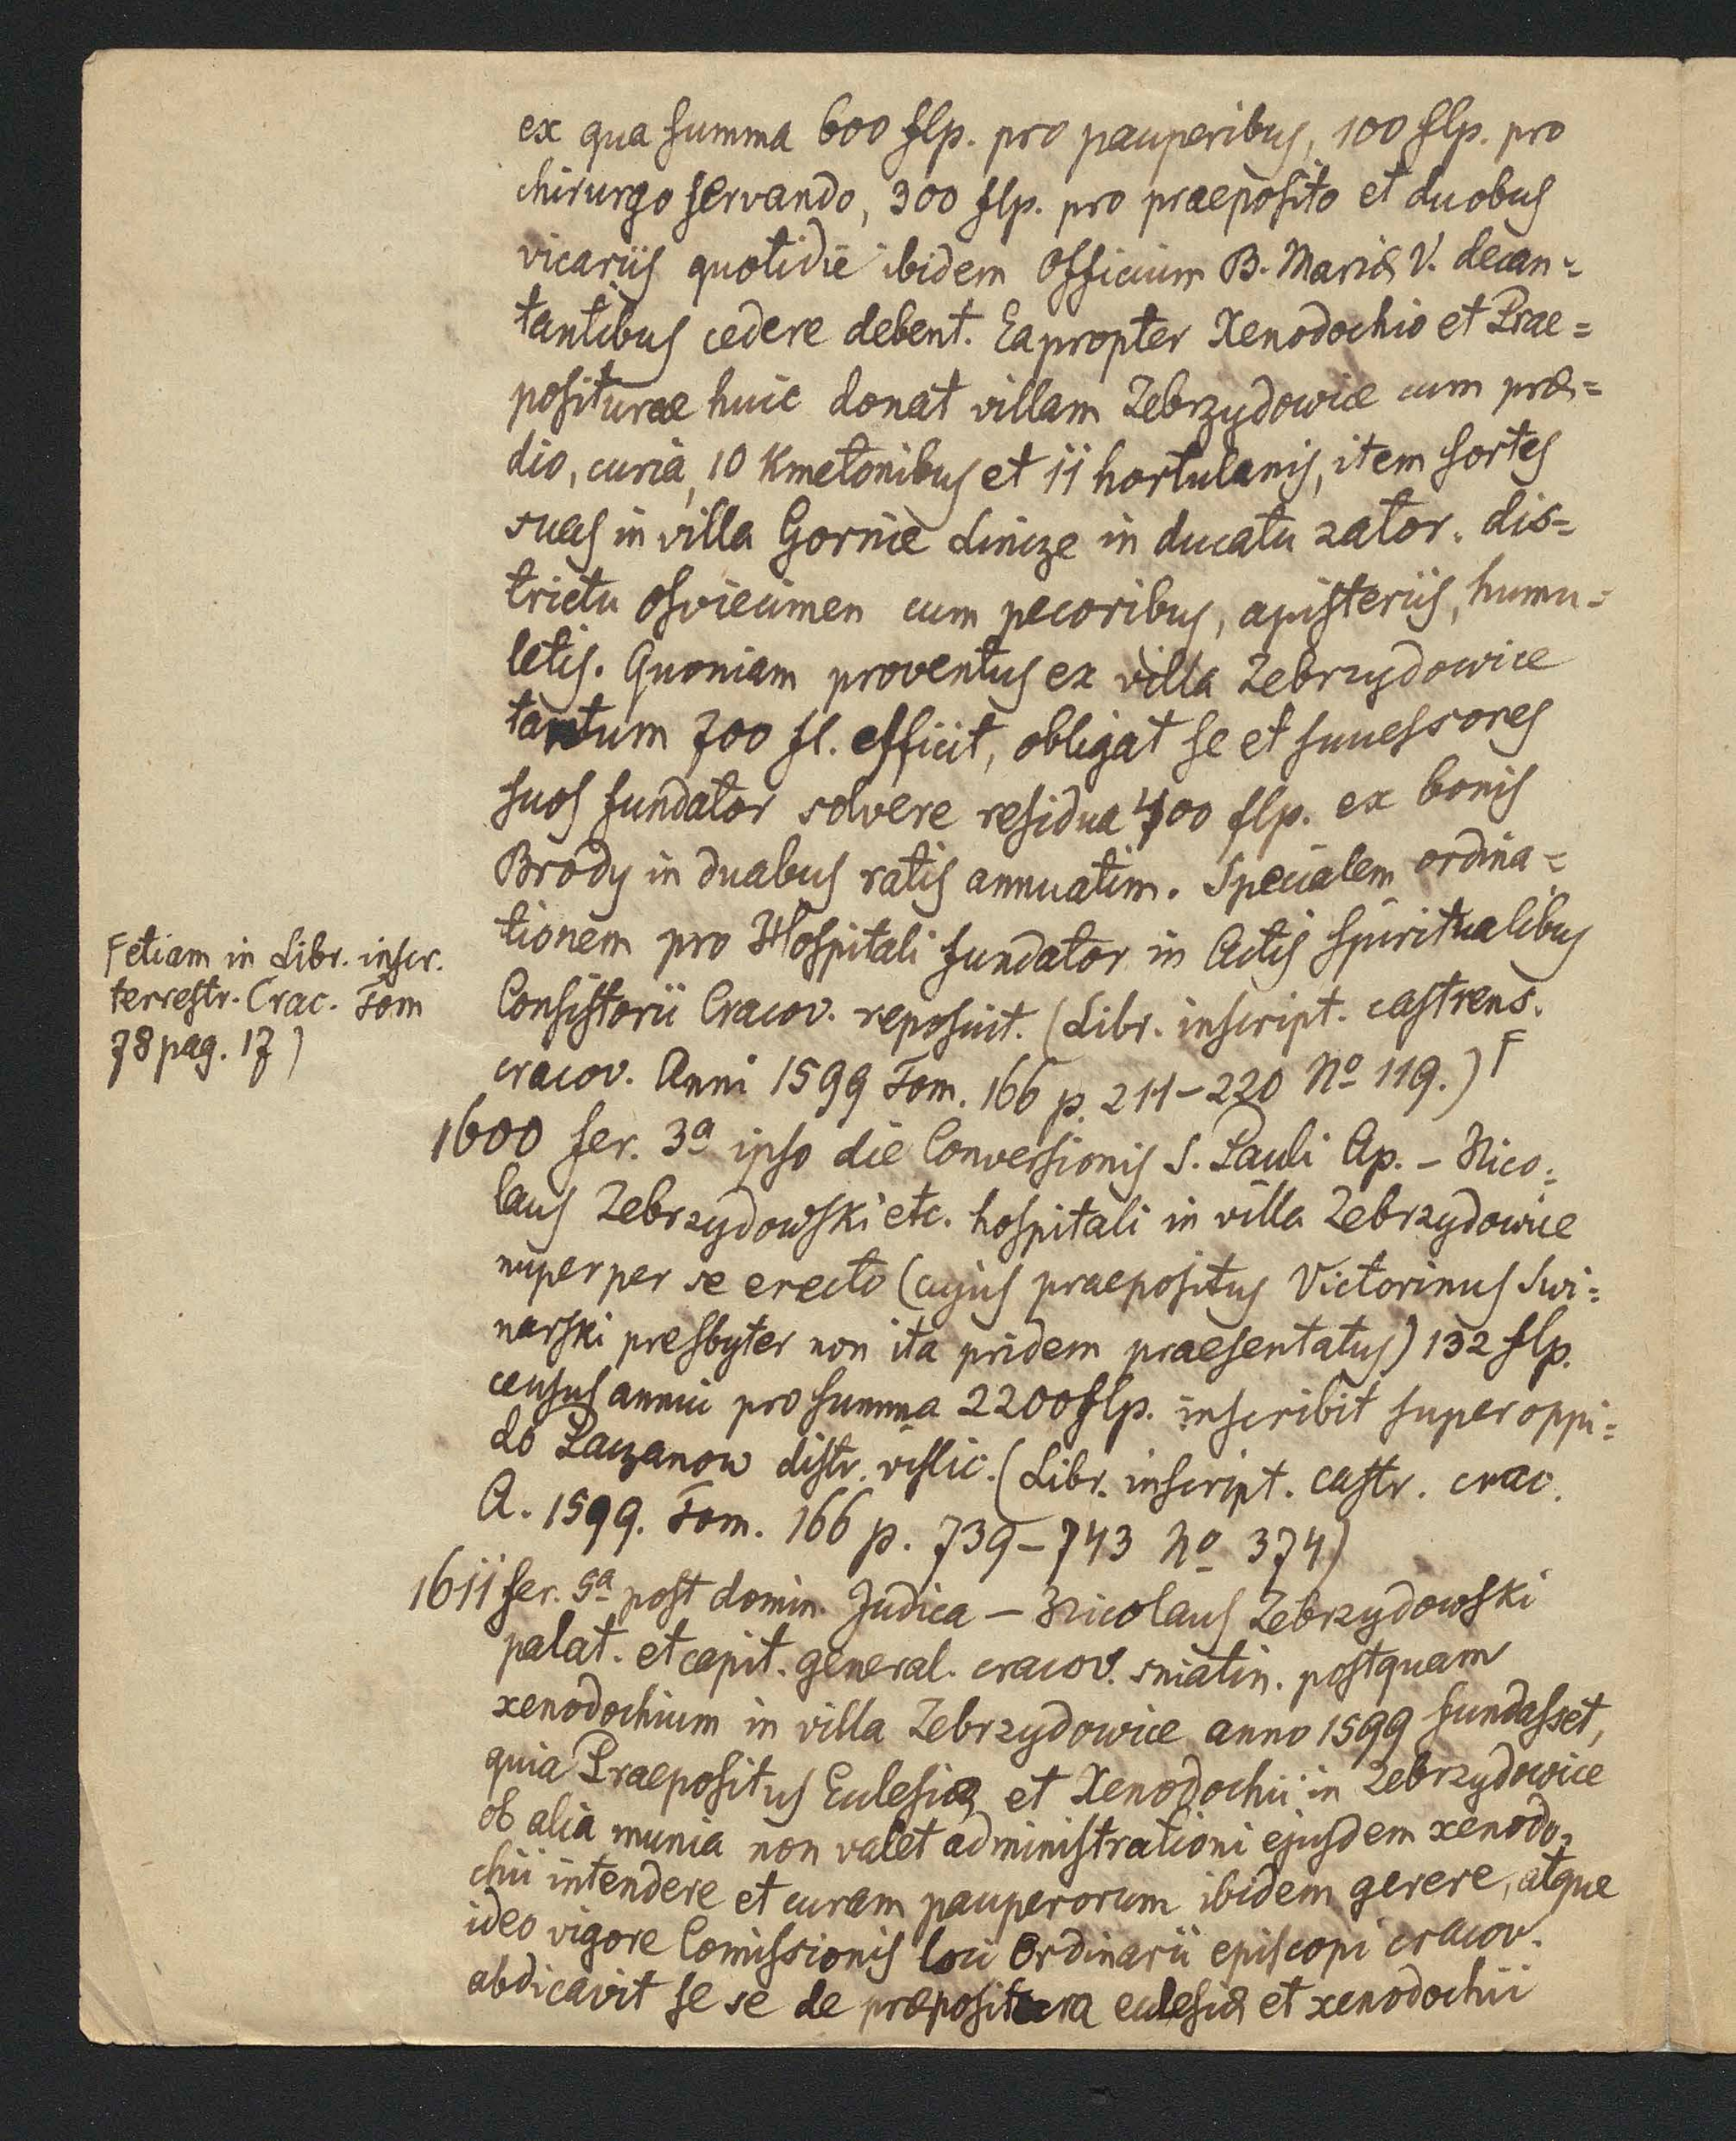 ex qua summa 600 flp. pro pauperibus, 100 flp. pro
chirurgo servando, 300 flp. pro praeposito et duobus
vicariis quotidie ibidem Officium B. Mariæ V. decan=
tantibus cedere debent. Eapropter Xenodochio et Prae=
positurae huic donat villam Zebrzydowice cum præ=
dio, curia, 10 Kmetonibus et 11 hortulanis, item sortes
suas in villa Gornie Linize in ducatu zator. dis=
trictu Osviecimen cum pecoribus, apisteriis, humu=
letis. Quoniam proventus ex villa Zebrzydowice
tantum 700 fl. efficit, obligat se et successores
suos fundator solvere residua 400 flp. ex bonis
Brody in duabus ratis annuatim. Specialem ordina=
tionem pro Hospitali fundator in Actis Spiritualibus
Consistorii Cracov. reposuit. (Libr. inscript. castrens.
cracov. Anni 1599 Tom. 166 p. 211-220 No 119.) F
F etiam in Libr. inscr.
terrestr. Crac. Tom
78 pag. 17)
1600 fer. 3a ipso die Conversionis S. Pauli Ap. - Nico=
laus Zebrzydowski etc. hospitali in villa Zebrzydowice
nuper per se erecto (cujus praepositus Victorinus Swi=
narski presbyter non ita pridem praesentatus) 132 flp.
census annui pro summa 2200 flp. inscribit super oppi=
do Paczanow distr. vislic. (Libr. inscript. castr. crac.
A. 1599. Tom. 166 p. 739-743 No 374)
1611 fer. 5a post domin. Judica - Nicolaus Zebrzydowski
palat. et capit. general. cracov. sniatin. postquam
xenodochium in villa Zebrzydowice anno 1599 fundasset,
quia Praepositus Eclesiæ et Xenodochii in Zebrzydowice
ob alia munia non valet administrationi ejusdem xenodo=
chii intendere et curam pauperorum ibidem gerere, atque
ideo vigore Comissionis loci Ordinarii episcopi cracov.
abdicavit se se de præpositura eclesiæ et xenodochii